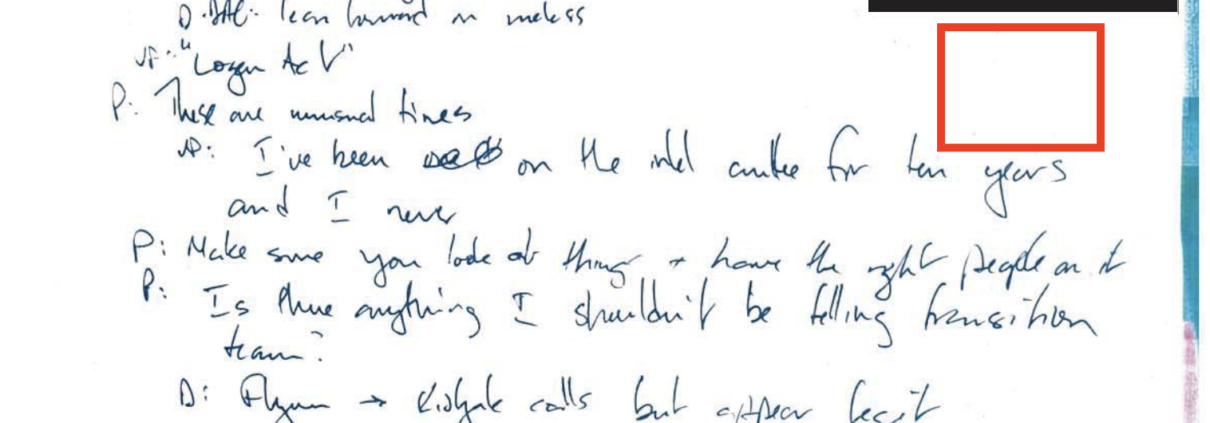 D-DAG: lean forward on unclass
VP: "Logan Act"
P: These are unusual times
VP: I've been on the intel cmttee for ten years
and I never
P: Make sure you look at things + have the right people on it
P: Is there anything I shouldn't be telling transition
team?
D: Flynn → Kislyak calls but appear legit